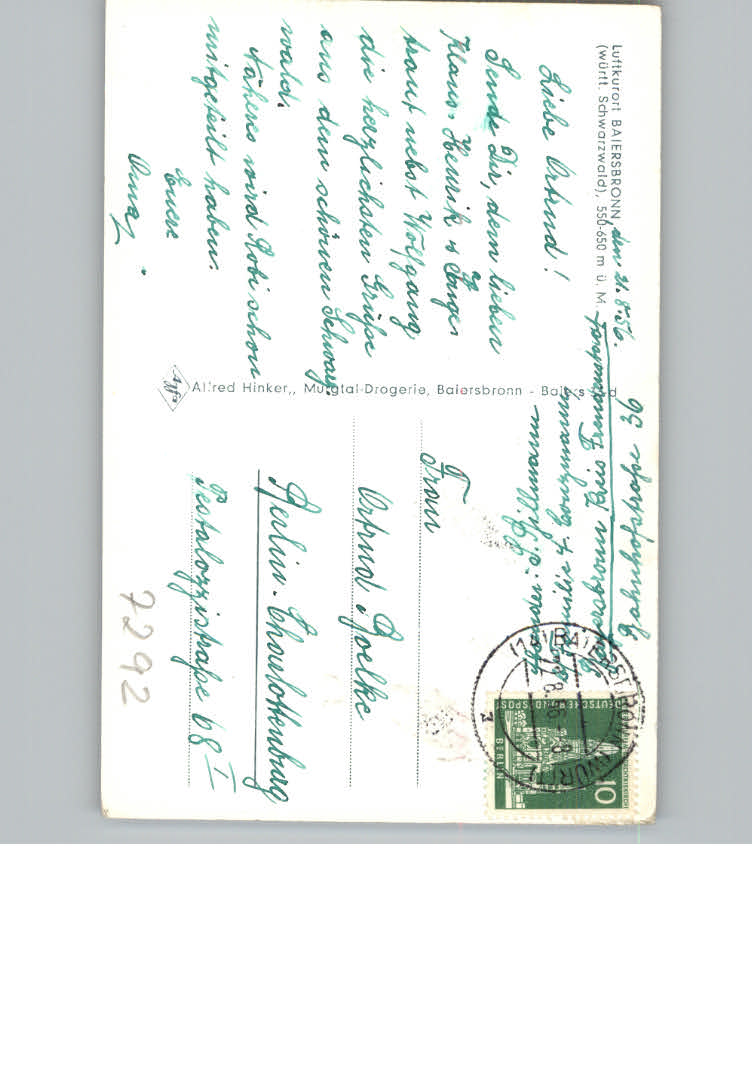 Luftkurort BAIERSBRONN
(württ. Schwarzwald), 550-650 m ü. M.
den 21.8.56.
Liebe Ortrud!
Sende Dir, dem lieben
Klaus-Henrik u
traut nebst Wolfgang
die herzlichsten Grüße
aus dem schönen Schwarz-
wald.
Näheres wird Robi schon
mitgeteilt haben.
Euere
Oma
Agfa
Alfred Hinker,, Murgtal-Drogerie, Baiersbronn - Baiersbild
Frau
Ortrud Boelke
Berlin-Charlottenburg
Pestalozzistraße 68 I
Bahnhofstraße 36
Kreis
Familie
7292
(14) BAIERSBRONN (WÜRTT)
8.56.-8
a
DEUTSCHE BUNDESPOST
BERLIN
10